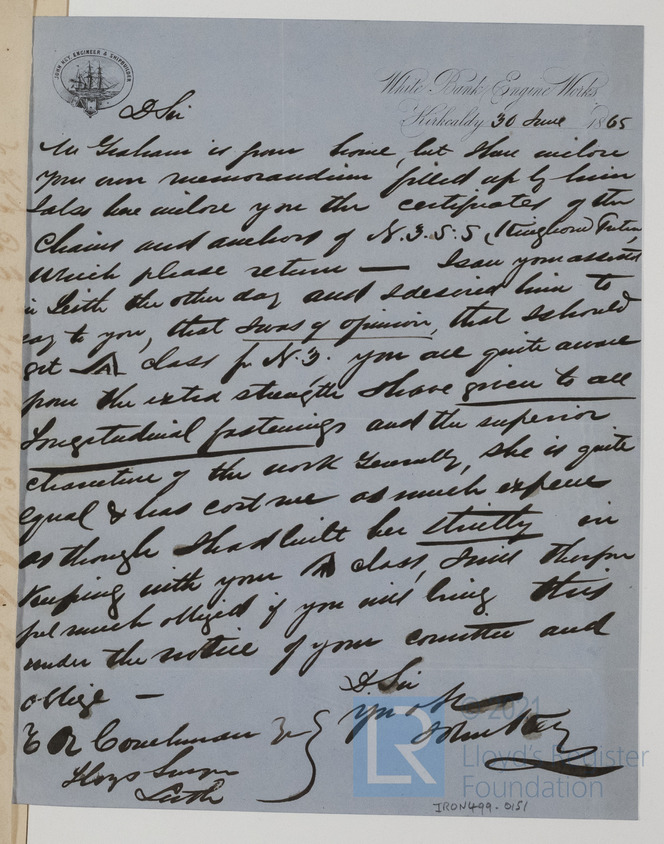 JOHN KEY, ENGINEER & SHIPBUILDER
White Bank Engine Works
Kirkcaldy 30 June 1865
D Sir
Mr Graham is from home, but I have inclose
your own memorandum filled up by him
I also have inclose you the certificates of the
Chains and anchors of N.3.S.S. (Kinghorn
which please return — I saw your assistt
in Leith the other day and I desired him to
say to you, that I was of opinion, that I should
get A class for N.3. you are quite aware
from the extra strength I have given to all
Longitudinal fastenings and the superior
character of the work Generally, she is quite
equal & has cost me as much expense
as though I had built her strictly in
Keeping with your A class, I will therefor
feel much obliged if you will bring this
under the notice of your committee and
oblige —
D Sir
John Key
T R Couchman Eqr
Lloyds Surveyor
Leith
© 2021
LR
Lloyd's Register
Foundation
IRON499-0151